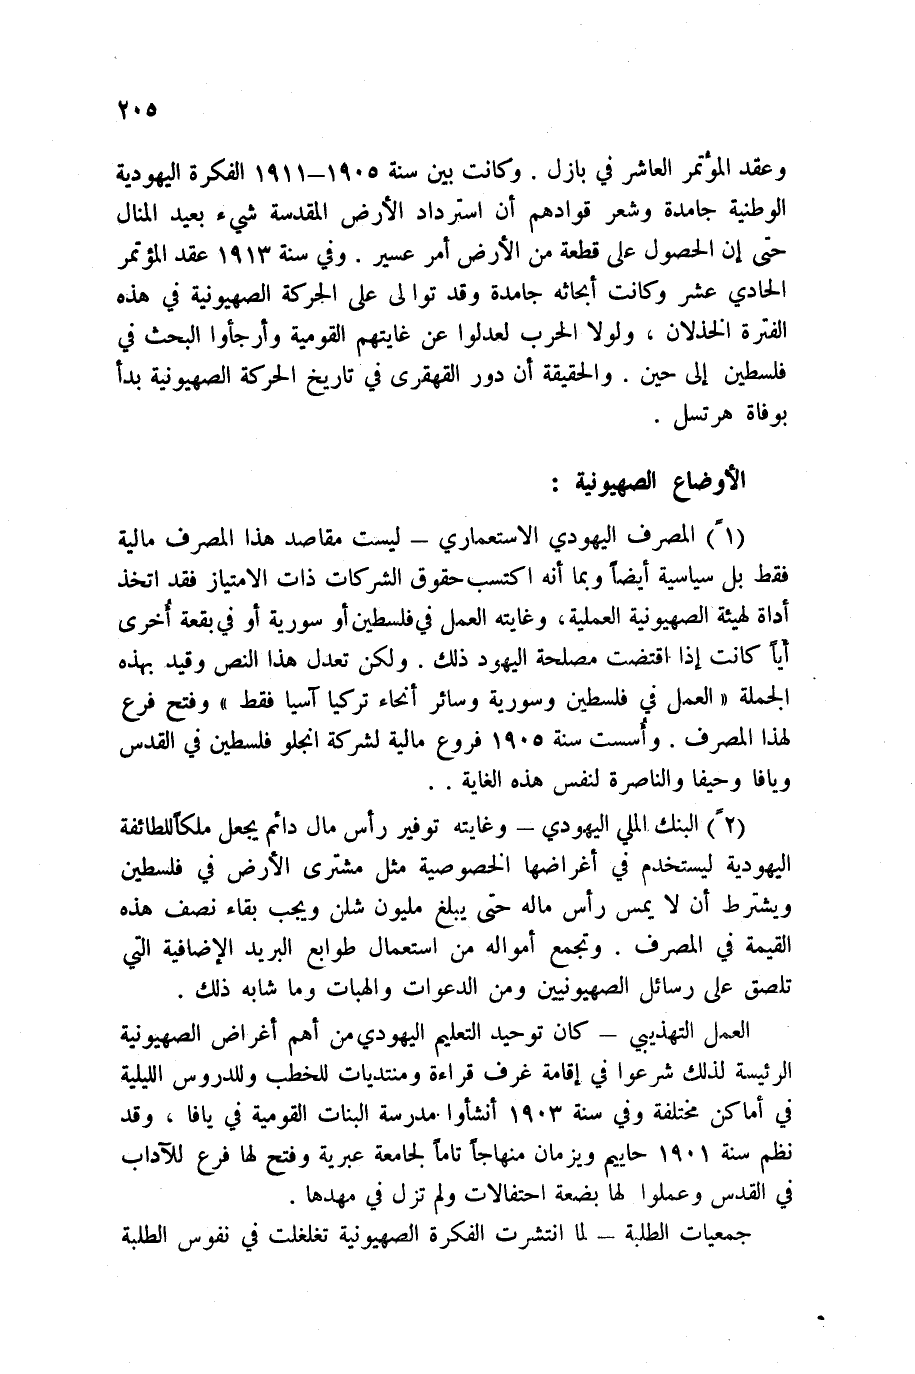 ٢٠٥
وعقد المؤتمر العاشر في بازل . وكانت بين سنة ١٩٠٥–١٩١١ الفكرة اليهودية
الوطنية جامدة وشعر قوادهم أن استرداد الأرض المقدسة شيء بعيد المنال
حتى إن الحصول على قطعة من الأرض أمر عسير . وفي سنة ١٩١٣ عقد المؤتمر
الحادي عشر وكانت أبحاثه جامدة وقد توالى على الحركة الصهيونية في هذه
الفترة الخذلان ، ولولا الحرب لعدلوا عن غايتهم القومية وأرجأوا البحث في
فلسطين إلى حين . والحقيقة أن دور القهقرى في تاريخ الحركة الصهيونية بدأ
بوفاة هرتسل .
الأوضاع الصهيونية :
(١ً) المصرف اليهودي الاستعماري – ليست مقاصد هذا المصرف مالية
فقط بل سياسية أيضاً وبما أنه اكتسب حقوق الشركات ذات الامتياز فقد اتخذ
أداة لهيئة الصهيونية العملية ، وغايته العمل في فلسطين أو سورية أو في بقعة أُخرى
أياً كانت إذا اقتضت مصلحة اليهود ذلك . ولكن تعدل هذا النص وقيد بهذه
الجملة « العمل في فلسطين وسورية وسائر أنحاء تركيا آسيا فقط » وفتح فرع
لهذا المصرف . وأُسست سنة ١٩٠٥ فروع مالية لشركة انجلو فلسطين في القدس
ويافا وحيفا والناصرة لنفس هذه الغاية . .
(٢ً) البنك الملي اليهودي – وغايته توفير رأس مال دائم يجعل ملكاً للطائفة
اليهودية ليستخدم في أغراضها الخصوصية مثل مشترى الأرض في فلسطين
ويشترط أن لا يمس رأس ماله حتى يبلغ مليون شلن ويجب بقاء نصف هذه
القيمة في المصرف . وتجمع أمواله من استعمال طوابع البريد الإضافية التي
تلصق على رسائل الصهيونيين ومن الدعوات والهبات وما شابه ذلك .
العمل التهذيبي – كان توحيد التعليم اليهودي من أهم أغراض الصهيونية
الرئيسة لذلك شرعوا في إقامة غرف قراءة ومنتديات للخطب وللدروس الليلية
في أماكن مختلفة وفي سنة ١٩٠٣ أنشأوا مدرسة البنات القومية في يافا ، وقد
نظم سنة ١٩٠١ حاييم ويزمان منهاجاً تاماً لجامعة عبرية وفتح لها فرع للآداب
في القدس وعملوا لها بضعة احتفالات ولم تزل في مهدها .
جمعيات الطلبة – لما انتشرت الفكرة الصهيونية تغلغلت في نفوس الطلبة